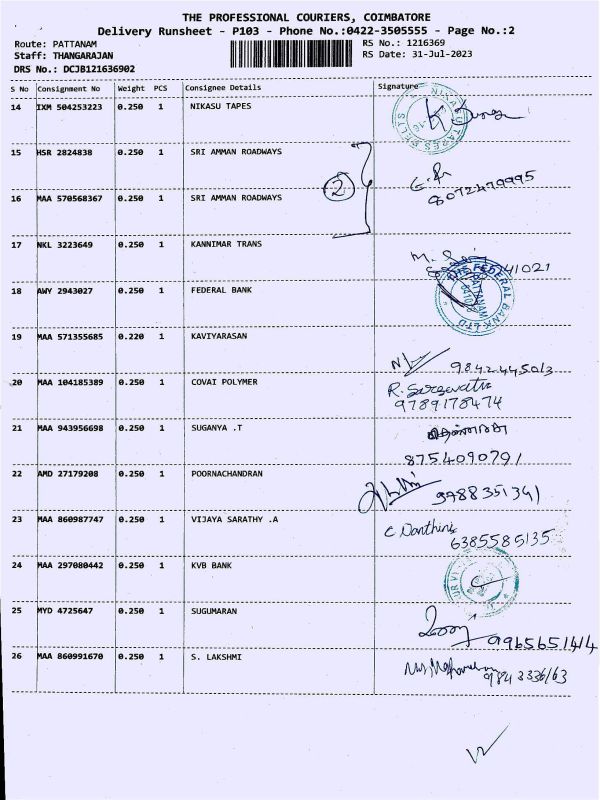 THE PROFESSIONAL COURIERS, COIMBATORE
Delivery Runsheet - P103 - Phone No.:0422-3505555 - Page No.:2
Route: PATTANAM
RS No.: 1216369
Staff: THANGARAJAN
RS Date: 31-Jul-2023
DRS No.: DCJB121636902
S No Consignment No Weight PCS Consignee Details Signature
14 IXM 504253223 0.250 1 NIKASU TAPES
NIKASU TAPES BELTS
15 HSR 2824838 0.250 1 SRI AMMAN ROADWAYS
2
16 MAA 570568367 0.250 1 SRI AMMAN ROADWAYS
8072479995
17 NKL 3223649 0.250 1 KANNIMAR TRANS
41021
18 AWY 2943027 0.250 1 FEDERAL BANK
THE FEDERAL BANK LTD
PATTANAM
19 MAA 571355685 0.220 1 KAVIYARASAN
9842445013
20 MAA 104185389 0.250 1 COVAI POLYMER
R. Saraswathi
9789178474
21 MAA 943956698 0.250 1 SUGANYA .T
8754090791
22 AMD 27179208 0.250 1 POORNACHANDRAN
9788351341
23 MAA 860987747 0.250 1 VIJAYA SARATHY .A
6385585135
24 MAA 297080442 0.250 1 KVB BANK
25 MYD 4725647 0.250 1 SUGUMARAN
9965651414
26 MAA 860991670 0.250 1 S. LAKSHMI
9843336163